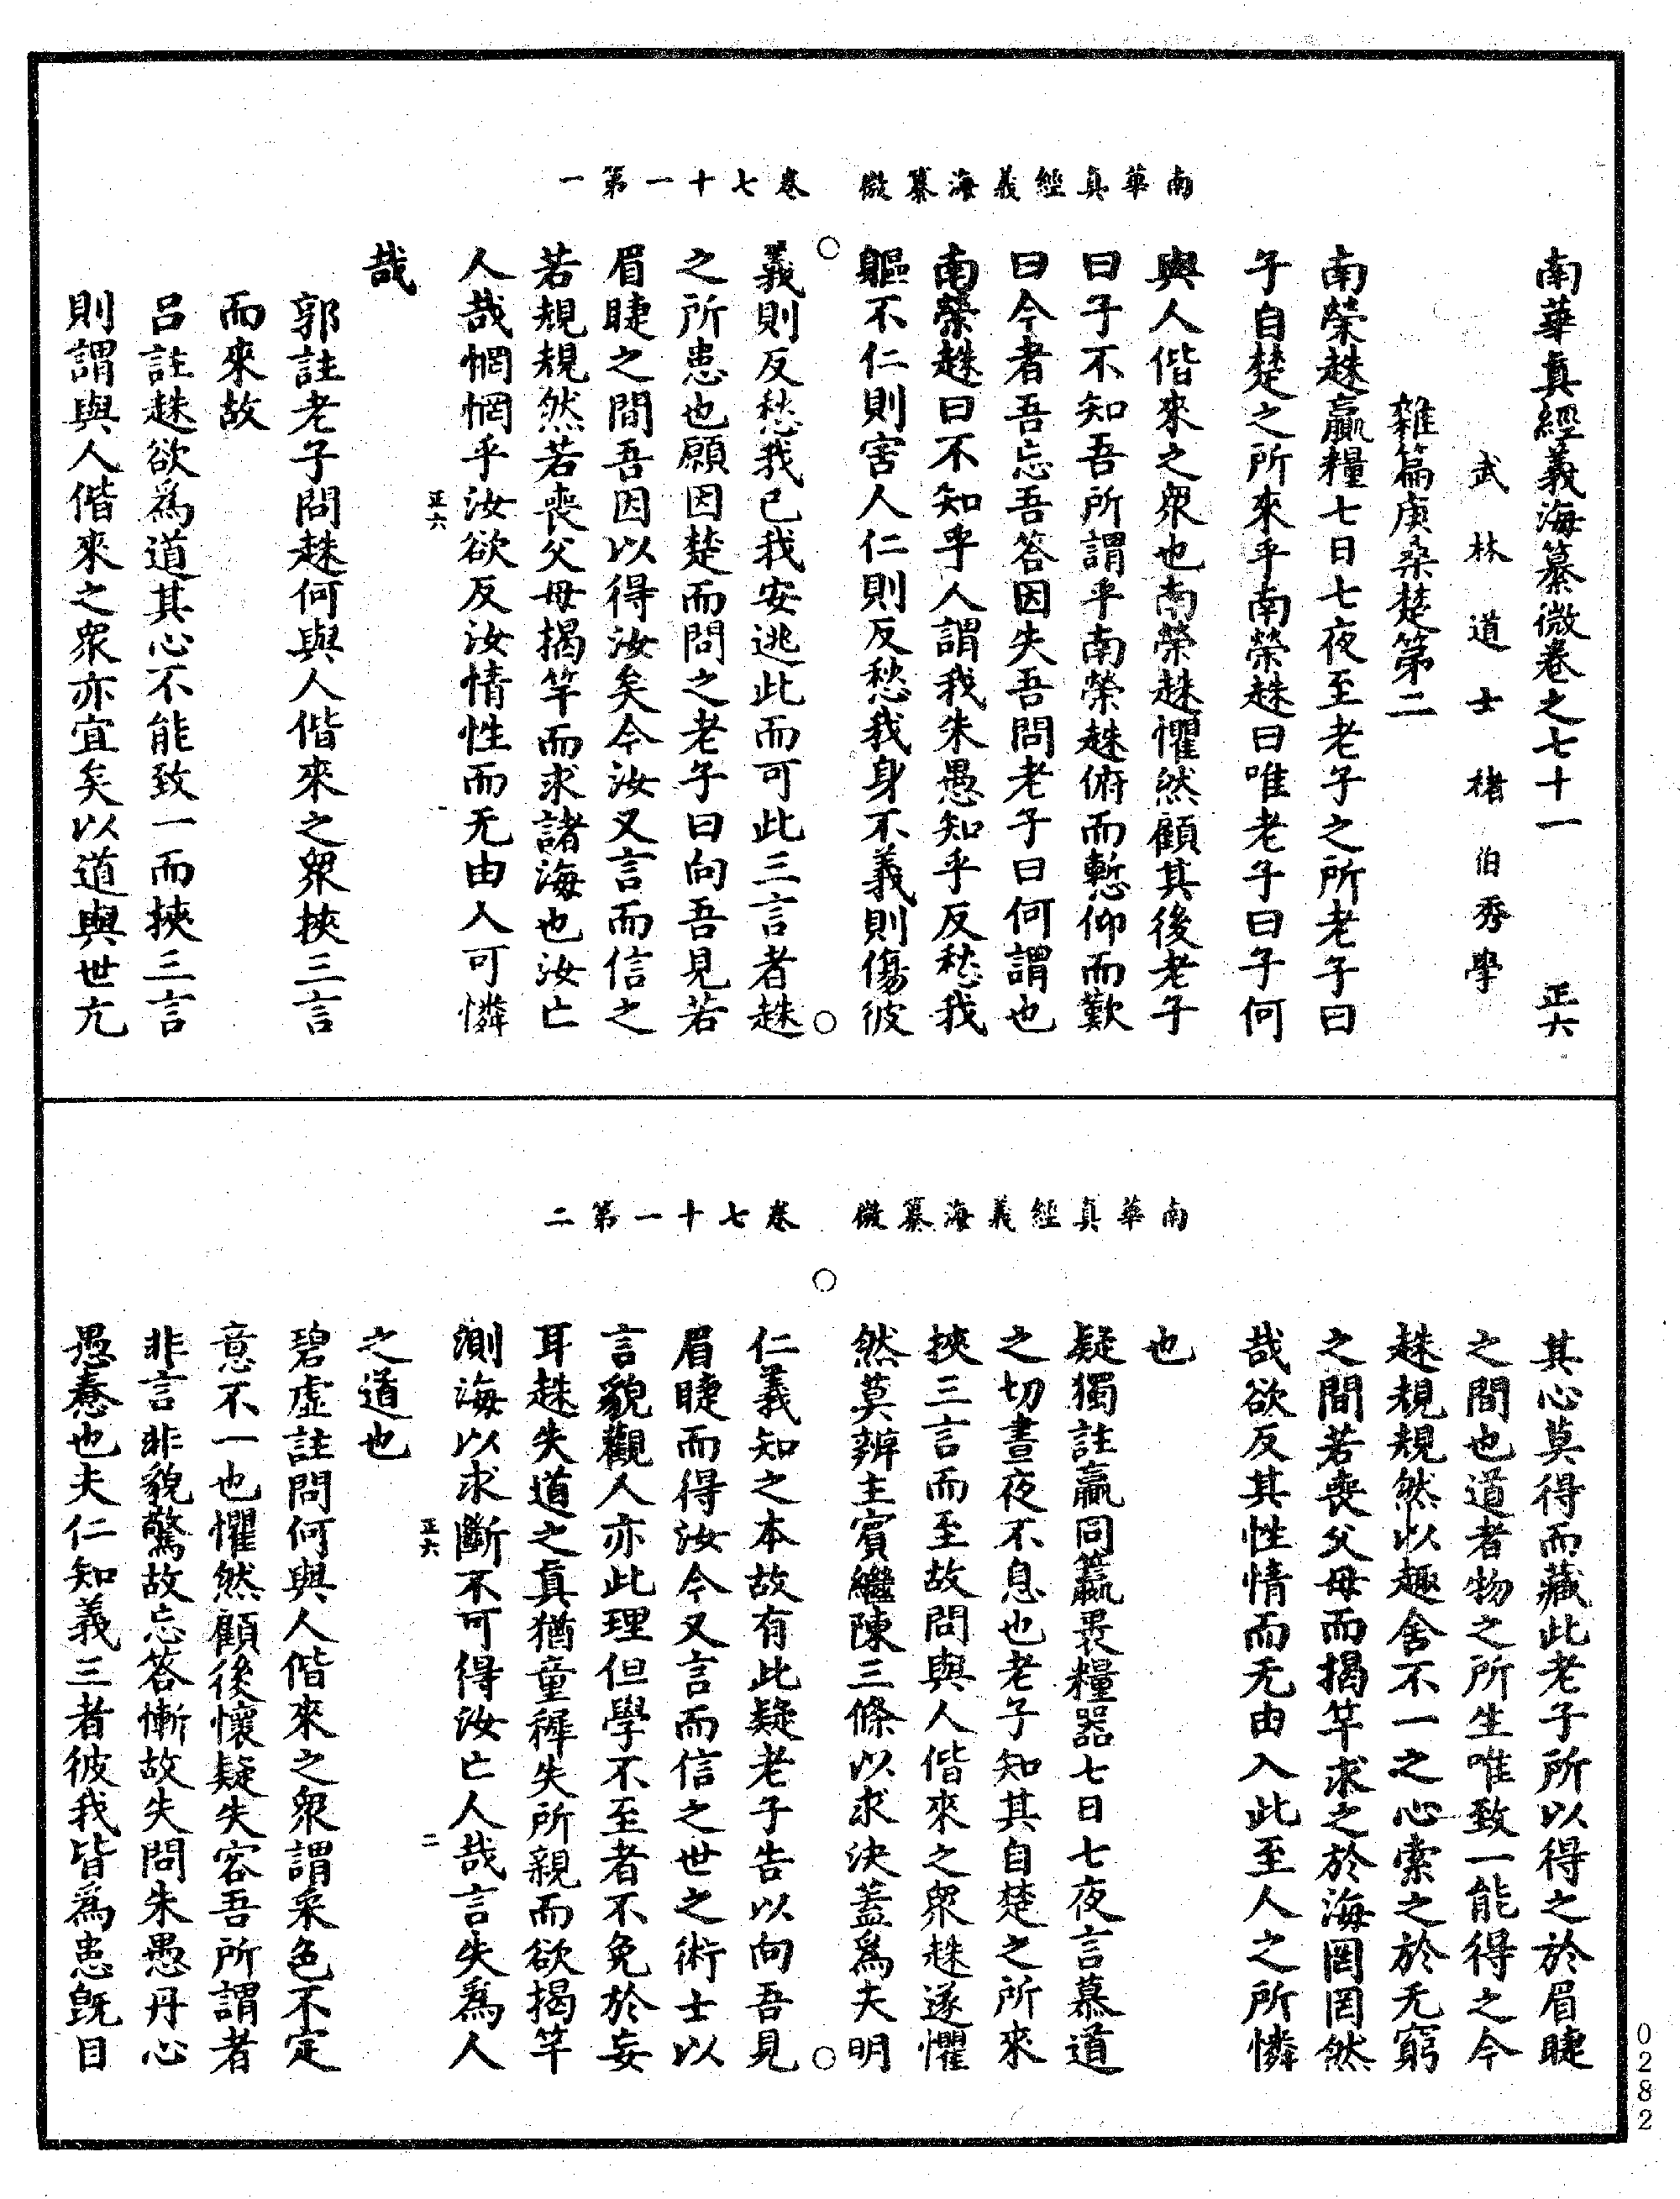 南華真經義海纂微　卷七十一第一
南華真經義海纂微卷之七十一　正六
武林道士褚伯秀學
雜篇庚桑楚第二
南榮趎贏糧七日七夜至老子之所老子曰
子自楚之所來乎南榮趎曰唯老子曰子何
與人偕來之衆也南榮趎懼然顧其後老子
曰子不知吾所謂乎南榮趎俯而慙仰而歎
曰今者吾忘吾答因失吾問老子曰何謂也
南榮趎曰不知乎人謂我朱愚知乎反愁我
軀不仁則害人仁則反愁我身不義則傷彼
義則反愁我已我安逃此而可此三言者趎
之所患也願因楚而問之老子曰向吾見若
眉睫之間吾因以得汝矣今汝又言而信之
若規規然若喪父母揭竿而求諸海也汝亡
人哉惘惘乎汝欲反汝情性而无由入可憐
正六
哉
郭註老子問趎何與人偕來之衆挾三言
而來故
呂註趎欲爲道其心不能致一而挾三言
則謂與人偕來之衆亦宜矣以道與世亢
南華真經義海纂微　卷七十一第二
其心莫得而藏此老子所以得之於眉睫
之間也道者物之所生唯致一能得之今
趎規規然以趣舍不一之心索之於无窮
之間若喪父母而揭竿求之於海罔罔然
哉欲反其性情而无由入此至人之所憐
也
疑獨註贏同籝畏糧器七日七夜言慕道
之切晝夜不息也老子知其自楚之所來
挾三言而至故問與人偕來之衆趎遂懼
然莫辨主賓繼陳三條以求決蓋爲夫明
仁義知之本故有此疑老子告以向吾見
眉睫而得汝今又言而信之世之術士以
言貌觀人亦此理但學不至者不免於妄
耳趎失道之真猶童穉失所親而欲揭竿
測海以求斷不可得汝亡人哉言失爲人
正六　二
之道也
碧虛註問何與人偕來之衆謂采色不定
意不一也懼然顧後懷疑失容吾所謂者
非言非貌驚故忘答慚故失問朱愚丹心
愚憃也夫仁知義三者彼我皆爲患旣目
0282